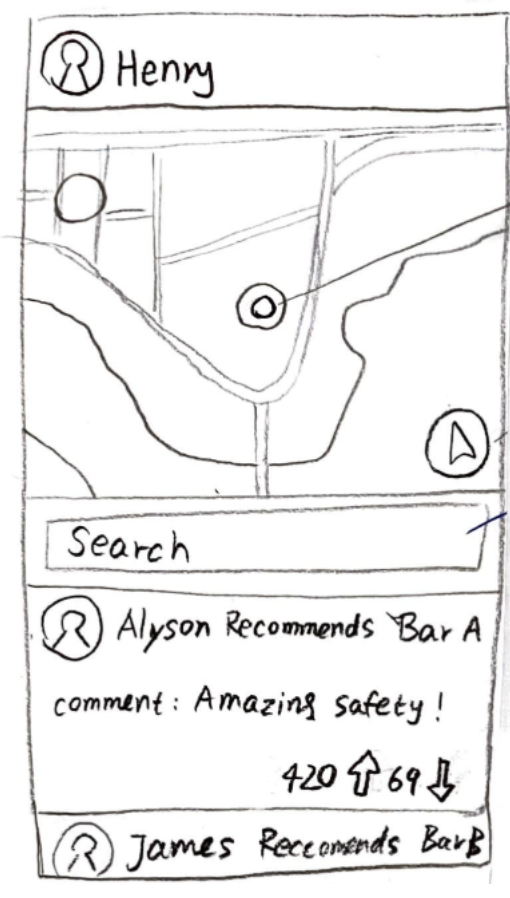 Henry
Search
Alyson Recommends Bar A
comment: Amazing safety!
420 69
James Reccomends Bar B